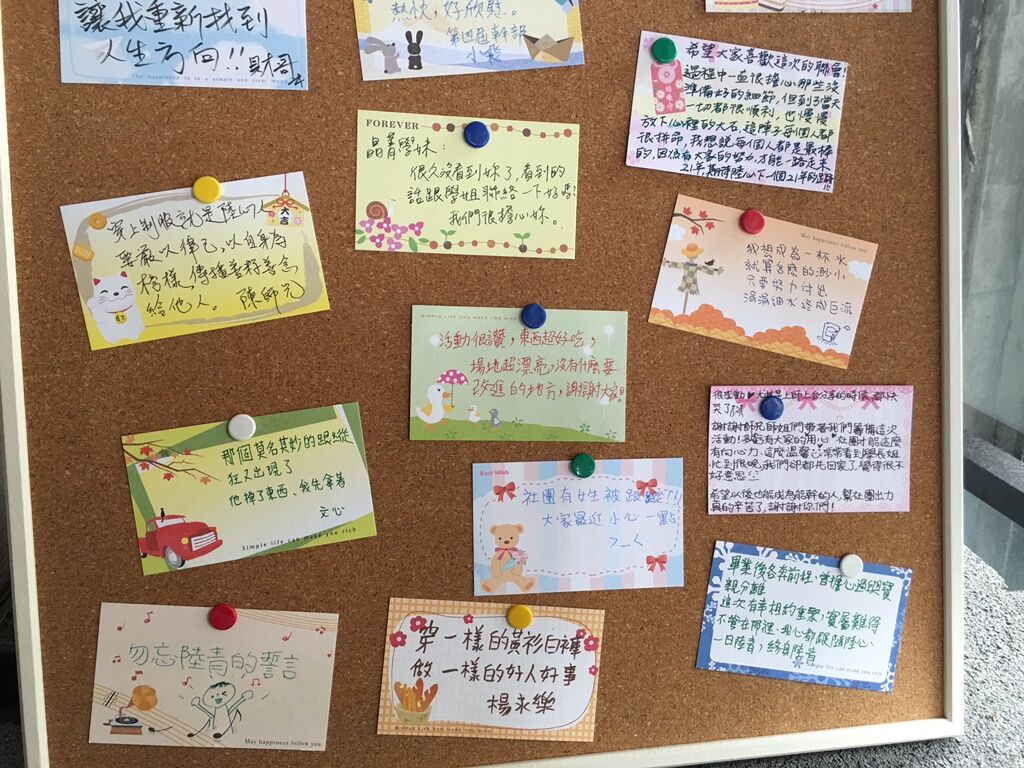 讓我重新找到
人生方向!!財哥
The happiness is in a simple and clear
熱忱,好欣慰。
第四屆幹部
小飛
希望大家喜歡這次的聯會!
過程中一直很擔心那些沒
準備好的細節,但到了當天
一切都很順利,也慢慢
放下心裡的大石,這陣子每個人都
很拼命,我想說每個人都是最棒
的,因為有大家的努力,才能一路走來
21年,期待陸心下一個21年的到來!!!
結緣令
FOREVER
晶菁學妹:
很久沒看到妳了,看到的
話跟學姐聯絡一下好嗎?
我們很擔心妳。
穿上制服就是陸心人
要嚴以律己,以自身為
榜樣,傳播善籽善念
給他人。 陳師兄
大吉
May happiness follow you
我想成為一杯水
就算多麼的渺小
只要努力付出
涓涓細水終成巨流
SIMPLE LIFE CAN MAKE YOU RICH
活動很讚,東西超好吃,
場地超漂亮,沒有什麼要
改進的地方,謝謝大家!
很感動♥尤其是上師上台分享的時候,都快
哭了
謝謝師兄師姐們帶著我們籌備這次
活動!多虧有大家的用心♥社團才能這麼
有向心力、這麼溫馨 常常看到學長姐
忙到很晚,我們卻都先回家了,覺得很不
好意思
希望以後也能成為能幹的人,幫社團出力
真的辛苦了,謝謝你們!
那個莫名其妙的跟蹤
狂又出現了
他掉了東西、我先拿著
文心
Simple life can make you rich
Best Wish
社團有女生被跟蹤!!!
大家最近小心一點
>_<
畢業後各奔前程,曾擔心過與寶
親分離
這次有幸相約重聚,實屬難得
不管在哪裡,我心都跟隨陸心、
一日陸青,終身陸青
Simple life can make you rich
勿忘陸青的誓言
May happiness follow you
穿一樣的黃衫白褲
做一樣的好人好事
楊永樂
SIMPLE LIFE CAN MAKE YOU RICH